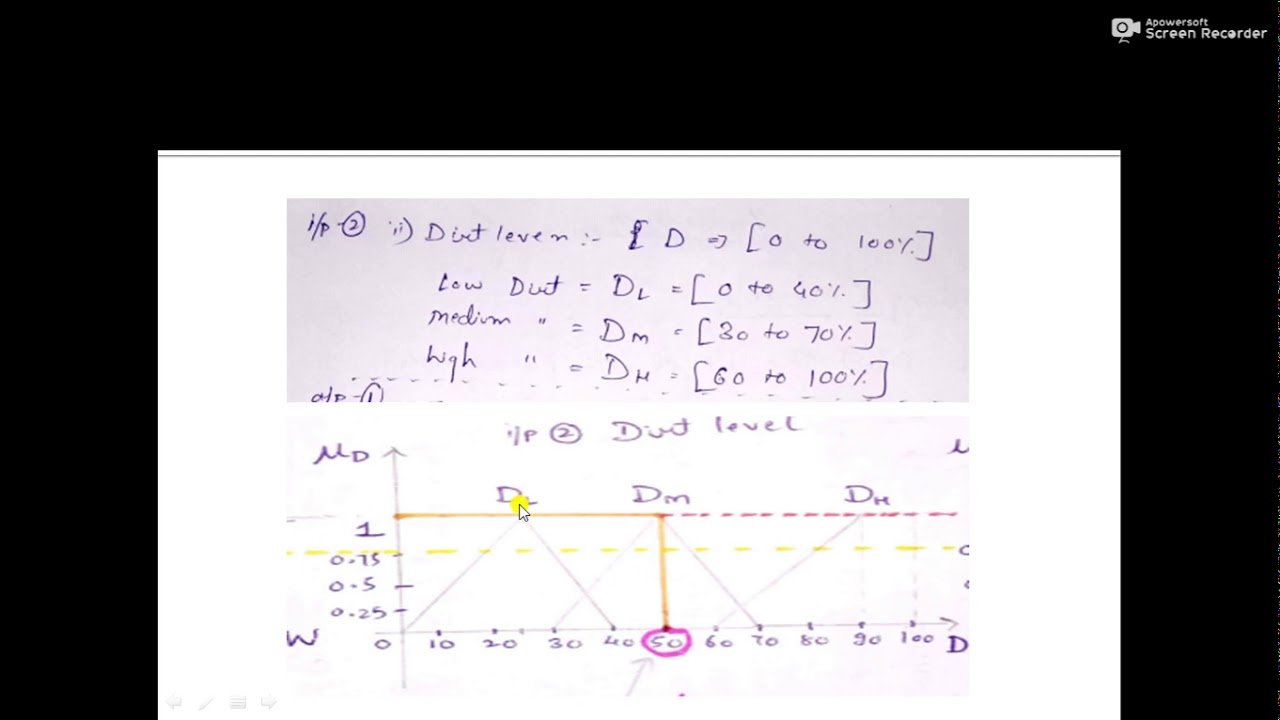 Apowersoft
Screen Recorder
i/p-② ii) Dirt level :- D ⇒ [0 to 100%]
Low Dirt = DL = [0 to 40%]
medium " = DM = [30 to 70%]
high " = DH = [60 to 100%]
o/p-①
i/p ② Dirt level
μD
DL DM DH
1
0.75
0.5
0.25
W 0 10 20 30 40 50 60 70 80 90 100 D